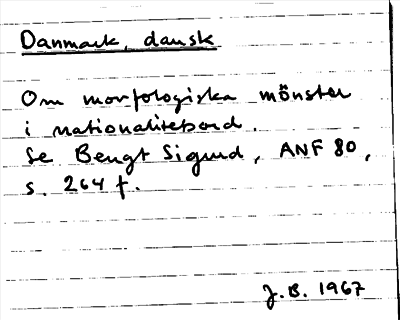 Danmark, dansk
Om morfologiska mönster
i nationalitetsord.
Se Bengt Sigurd, ANF 80,
s. 264 f.
J.B. 1967